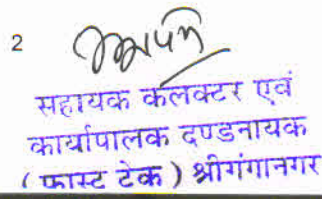 2
सहायक कलक्टर एवं
कार्यापालक दण्डनायक
( फास्ट टेक ) श्रीगंगानगर